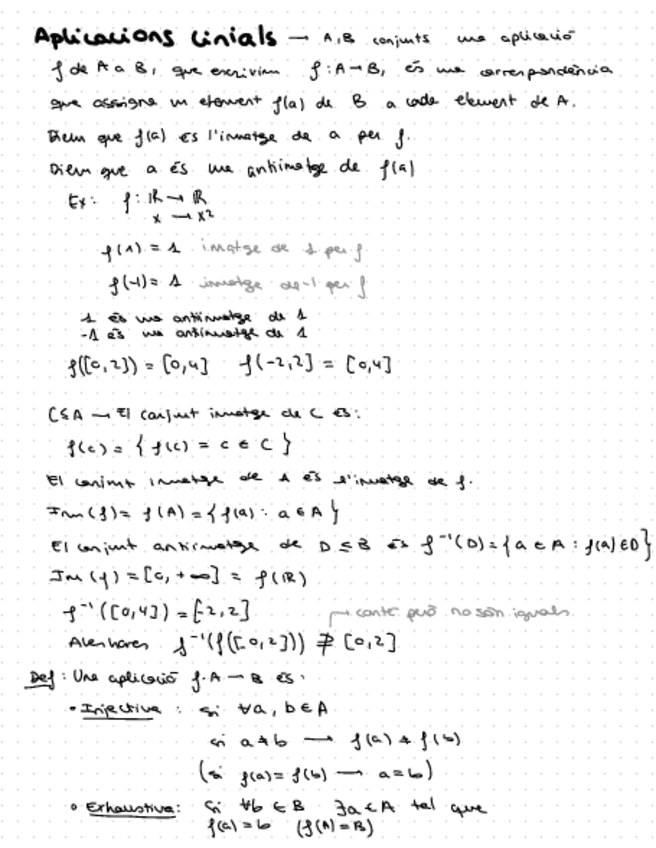 Aplicacions Linials → A,B conjunts una aplicació
f de A a B, que escrivim f: A→B, és una correspondència
que assigna un element f(a) de B a cada element de A.
Diem que f(a) és l'imatge de a per f.
Diem que a és una antiimatge de f(a)
Ex: f: ℝ → ℝ
x → x²
f(1) = 1 imatge de 1 per f
f(-1) = 1 imatge de -1 per f
1 és una antiimatge de 1
-1 és una antiimatge de 1
f([0,2]) = [0,4] f(-2,2] = [0,4]
C ⊆ A → El conjunt imatge de C és:
f(c) = { f(c) = c ∈ C }
El conjunt imatge de A és l'imatge de f.
Im(f) = f(A) = { f(a) : a ∈ A }
El conjunt antiimatge de D ⊆ B és f⁻¹(D) = { a ∈ A : f(a) ∈ D }
Im(f) = [0, +∞] = f(ℝ)
f⁻¹([0,4]) = [-2,2]
conté però no són iguals
Aleshores f⁻¹(f([0,2])) ⊋ [0,2]
Def: Una aplicació f: A → B és:
• Injectiva: si ∀a, b ∈ A
si a ≠ b → f(a) ≠ f(b)
(si f(a) = f(b) → a = b)
• Exhaustiva: Si ∀b ∈ B ∃a ∈ A tal que
f(a) = b (f(A) = B)